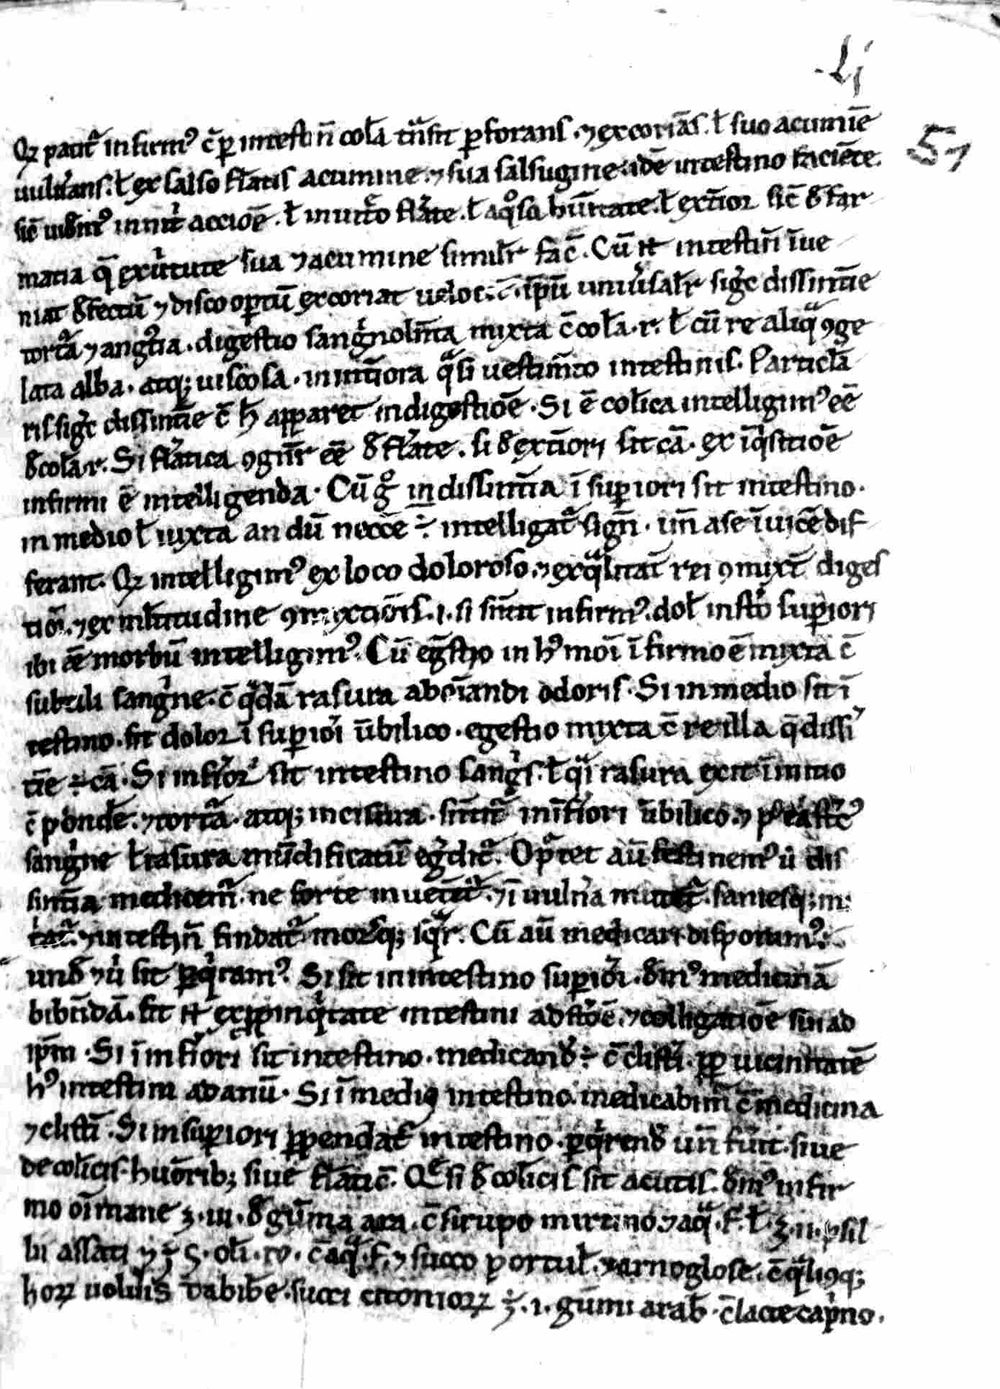 .Lj
51
Qꝛ patit᷑ infirmꝰ c̄ꝑ intestin̄ col̄a tn̄sit ꝑforans . ⁊ excorians . ł suo acumīe
uuln̄ans . ł ex salso fl̄atis acumine . ⁊ sua salsugine idē intestino faciēte .
sic̄ uidem̄ꝰ in nitͥ accōe . ł in uitͦo fl̄ate . ł aq̊sa hūitate . ł ext̄ior sic̄ đ far
matia q̄ ex uͥtute sua ⁊ acumine similr̄ fac̄ . Cū .n. intestin̄ īue
niat đfectū ⁊ discoopertū excoriat ueloc . ip̄m uniūsalr̄ sigͨ dissint̄ie
tort̄a ⁊ angͦtia . digestio sangͥnol̄nta mixta c̄ col̄a . r . ł cū re aliqͣ ꝯge
lata alba . atqꝫ uiscosa . in int̄iora qͣsi uestim̄to intestinis . Particl̄a
ris sigͨ dissint̄ie c̄ h̄ apparet in digestiōe . Si ē col̄ica intelligimꝰ eē
đ col̄a . r . Si fl̄atica ꝯgn̄r eē đ fl̄ate . si đ ext̄iori sit cā . ex iq̄sitiōe
infirmi ē intelligenda . Cū gͦ in dissint̄ia ī superiori sit intestino .
in medio ł iuxta an dū necc̄e ÷ intelligat᷑ sign̄ . un̄ a se īuicē dif
ferant . Qꝛ intelligimꝰ ex loco doloroso . ⁊ ex qͣlitat̄ rei ꝯmixt̄ diges
tiōī . ⁊ ex ml̄titudine ꝯmixtiōis . i . si sn̄tit infirmꝰ . dol̄ in stō superiori
ibi eē morbū intelligimꝰ . Cū egestio in hꝰmoī īfirmo ē mixta c̄
subtili sangͥne . c̄ qͣdā rasura abo̅iandi odoris . Si in medio sit ī
testino . sit dolor ī superioī ūbilico . egestio mixta c̄ re illa q̄ dissī
t̄ie ÷ cā . Si inf̄ior̄ sit intestino sangͥs . ł qͣi rasura exit īmixto
c̄ pōnder̄ . ⁊ tort̄a . atqꝫ incisura . sn̄tit᷑ in īf̄iori ūbilico . ⁊ pꝰ
sangͥne ł rasura mūdificatū eg̊dit᷑ . Oꝑtet aū festinemꝰ ū dis
sint̄ia medicem᷑ . ne forte inueteͥt᷑ . ⁊ ī uuln̄a mutet᷑ . saniesqꝫ
⁊ intestin̄ findat᷑ . morsqꝫ seqͣt᷑ . Cū aū medicari disponimꝰ .
unđ ⁊ ū sit ꝑqͥramꝰ . Si sit in intestino superioī . đmꝰ medicinā
bibn̄dā . sit .n. ex ꝓpinqͥtate intestini ad stō . ⁊ colligatiōe sui ad
ip̄m . Si ī inf̄iori sit intestino . medicanđ ÷ c̄ clisti . ꝓpꝑ uicinitatē
hꝰ intestini ad anū . Si ī medio intestino . medicabimꝰ c̄ medicina
⁊ clistī . Si in superiori ꝓpendat̄ intestino . ꝑqͥrenđ un̄ fuͥit . siue
de col̄icis huōribꝫ siue fl̄atic̄ . Qͦ si đ col̄icis sit acutis . đmꝰ infir
mo oī mane ʒ . iii . đ gūma ara . c̄ sirupo mirtino . ⁊ aqͣ . f . ł . ʒ . ii . psil
lii assati ⁊ ʒ . s . oli . ro . c̄ aqͣ . f . ⁊ succo portul̄ . ⁊ arnoglose . c̄ qͣliqꝫ
horꝝ uoluͥis . Da bibe . succi citoniorꝝ ʒ . i . gūmi arab̄ . c̄ lacte capͥno .